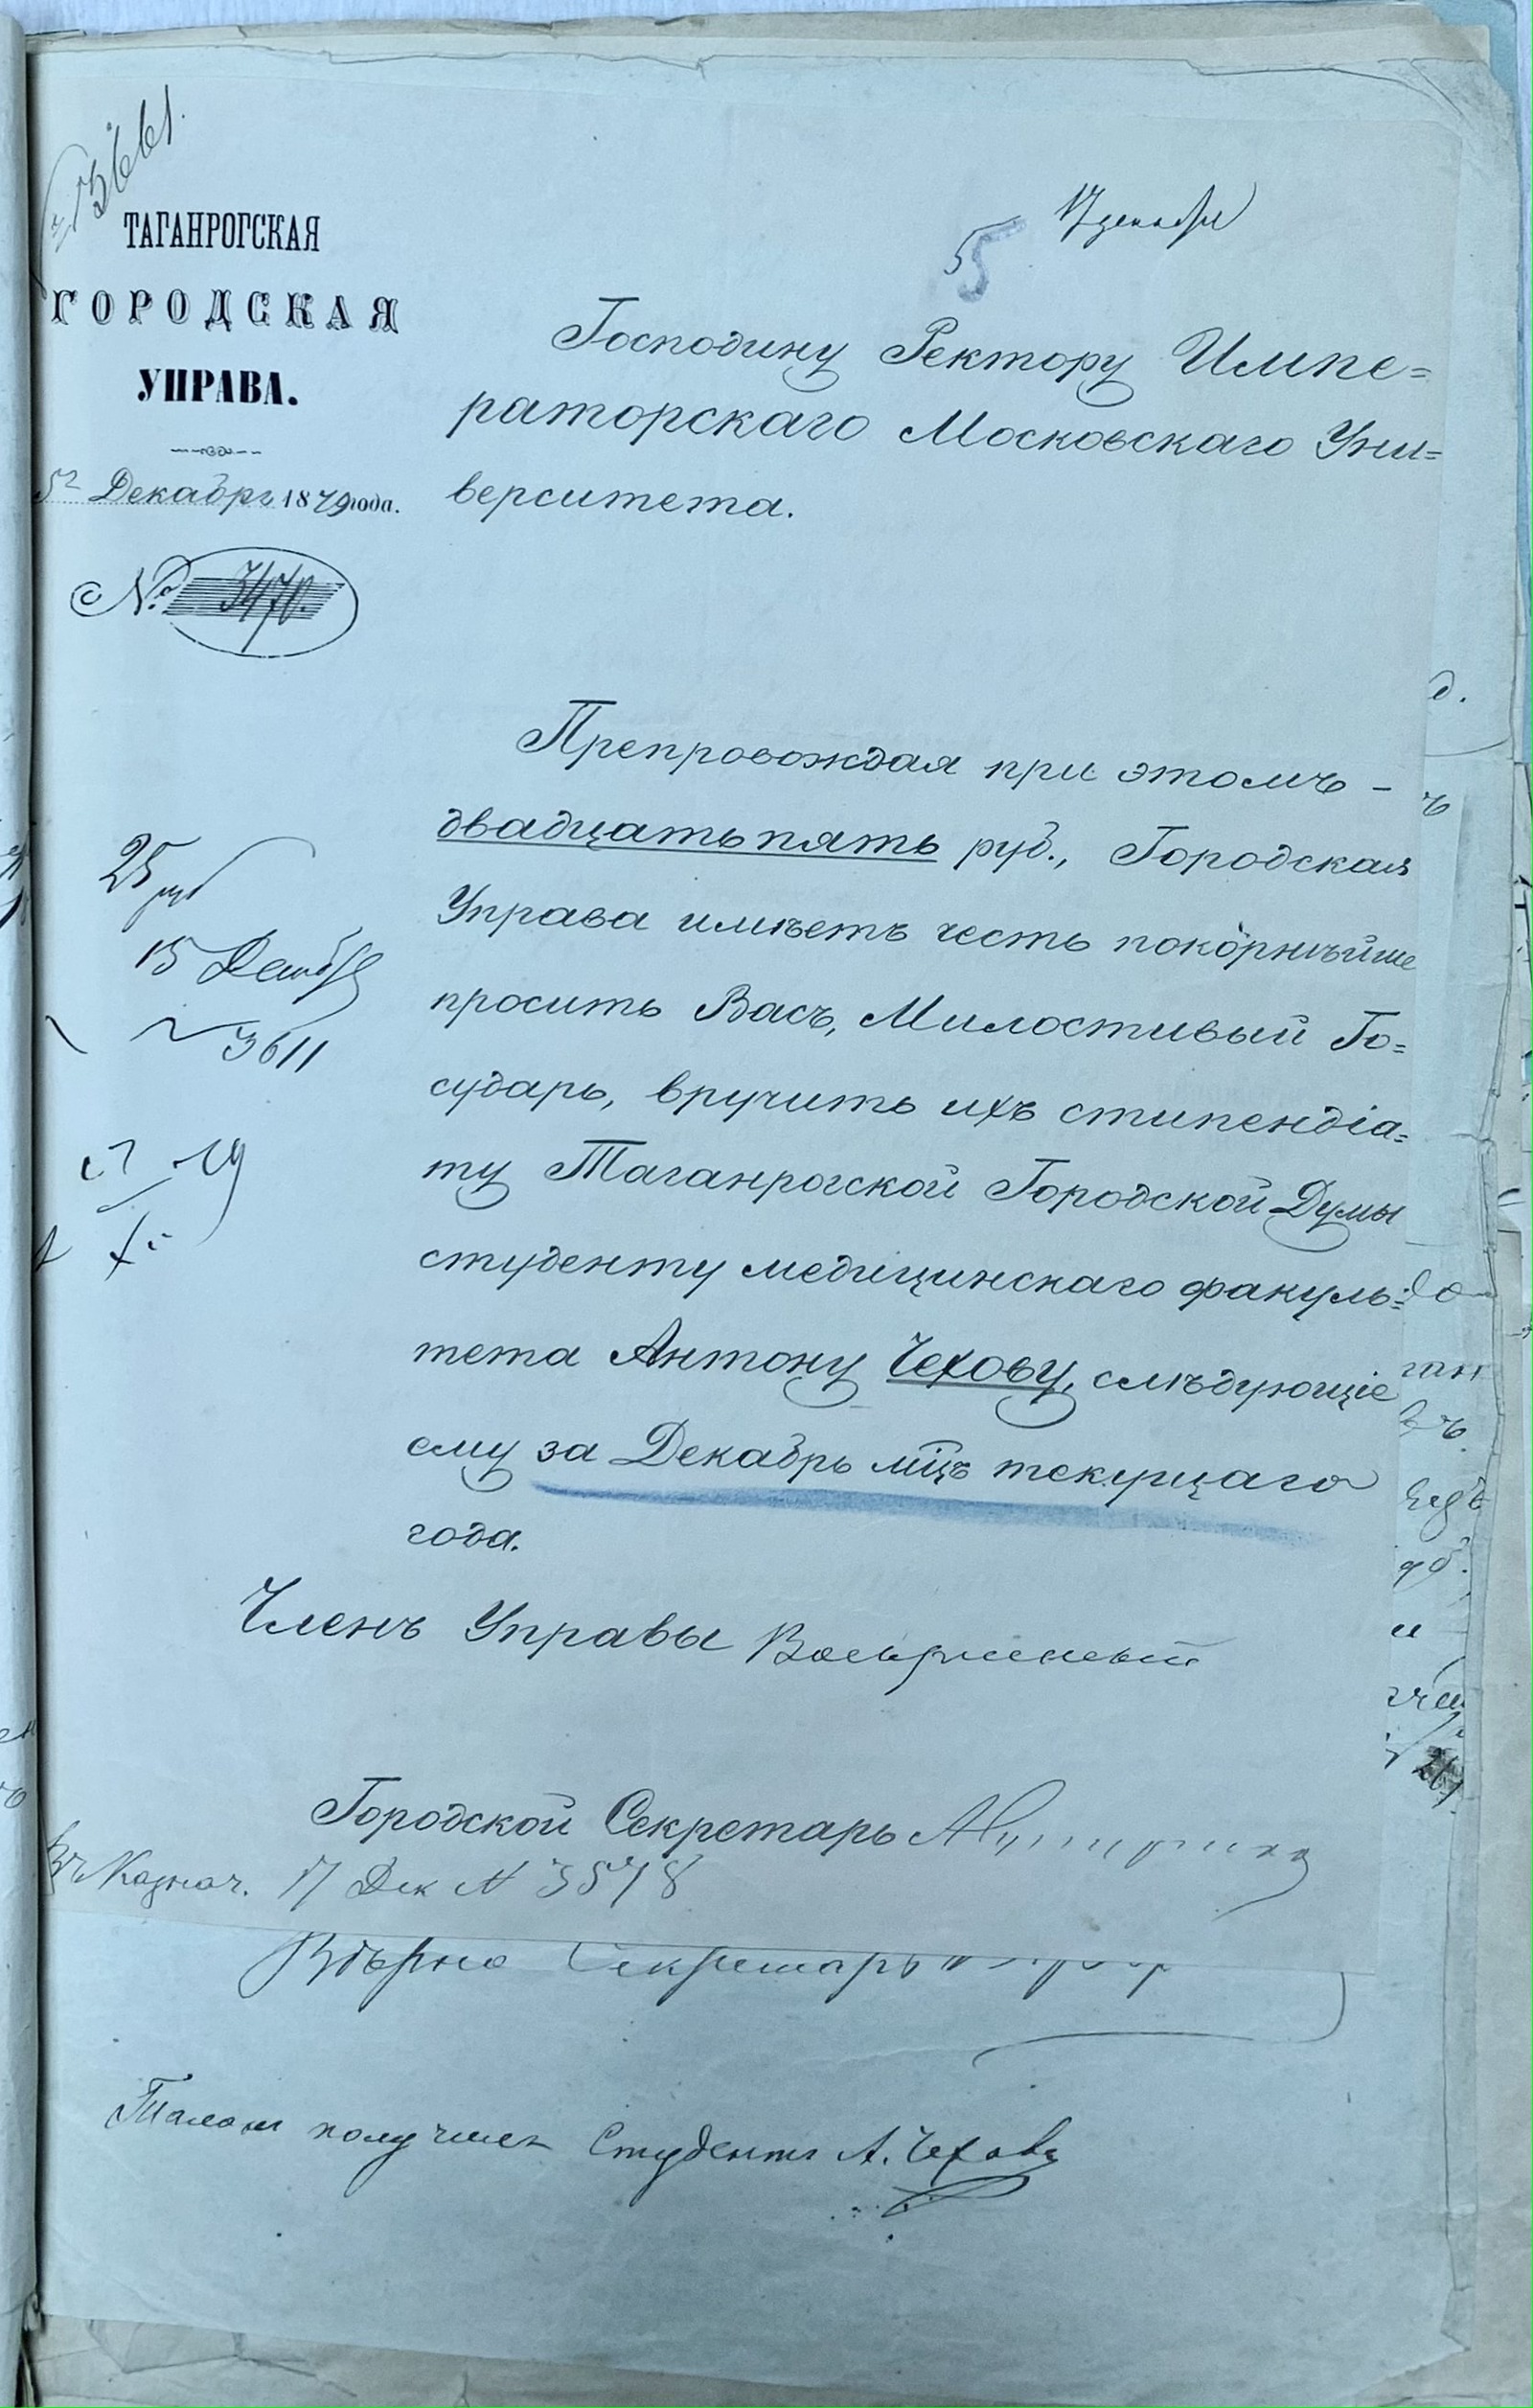 № 3661.
ТАГАНРОГСКАЯ
ГОРОДСКАЯ
УПРАВА.
5го Декабря 1879 года.
№ 3470.
17 декабря
55
Господину Ректору Импе=
раторскаго Московскаго Уни=
верситета.
Препровождая при этомъ –
двадцать пять руб., Городская
Управа имѣетъ честь покорнѣйше
просить Васъ, Милостивый Го=
сударь, вручить ихъ стипендіа=
ту Таганрогской Городской Думы
студенту медицинскаго факуль=
тета Антону Чехову, слѣдующіе
ему за Декабрь мцъ текущаго
года.
25 руб
15 Декабря
№ 3611
19
Членъ Управы
Городской Секретарь
Въ Казнач. 17 Дек № 3578
Вѣрно Секретарь
Талонъ получилъ Студентъ А. Чеховъ